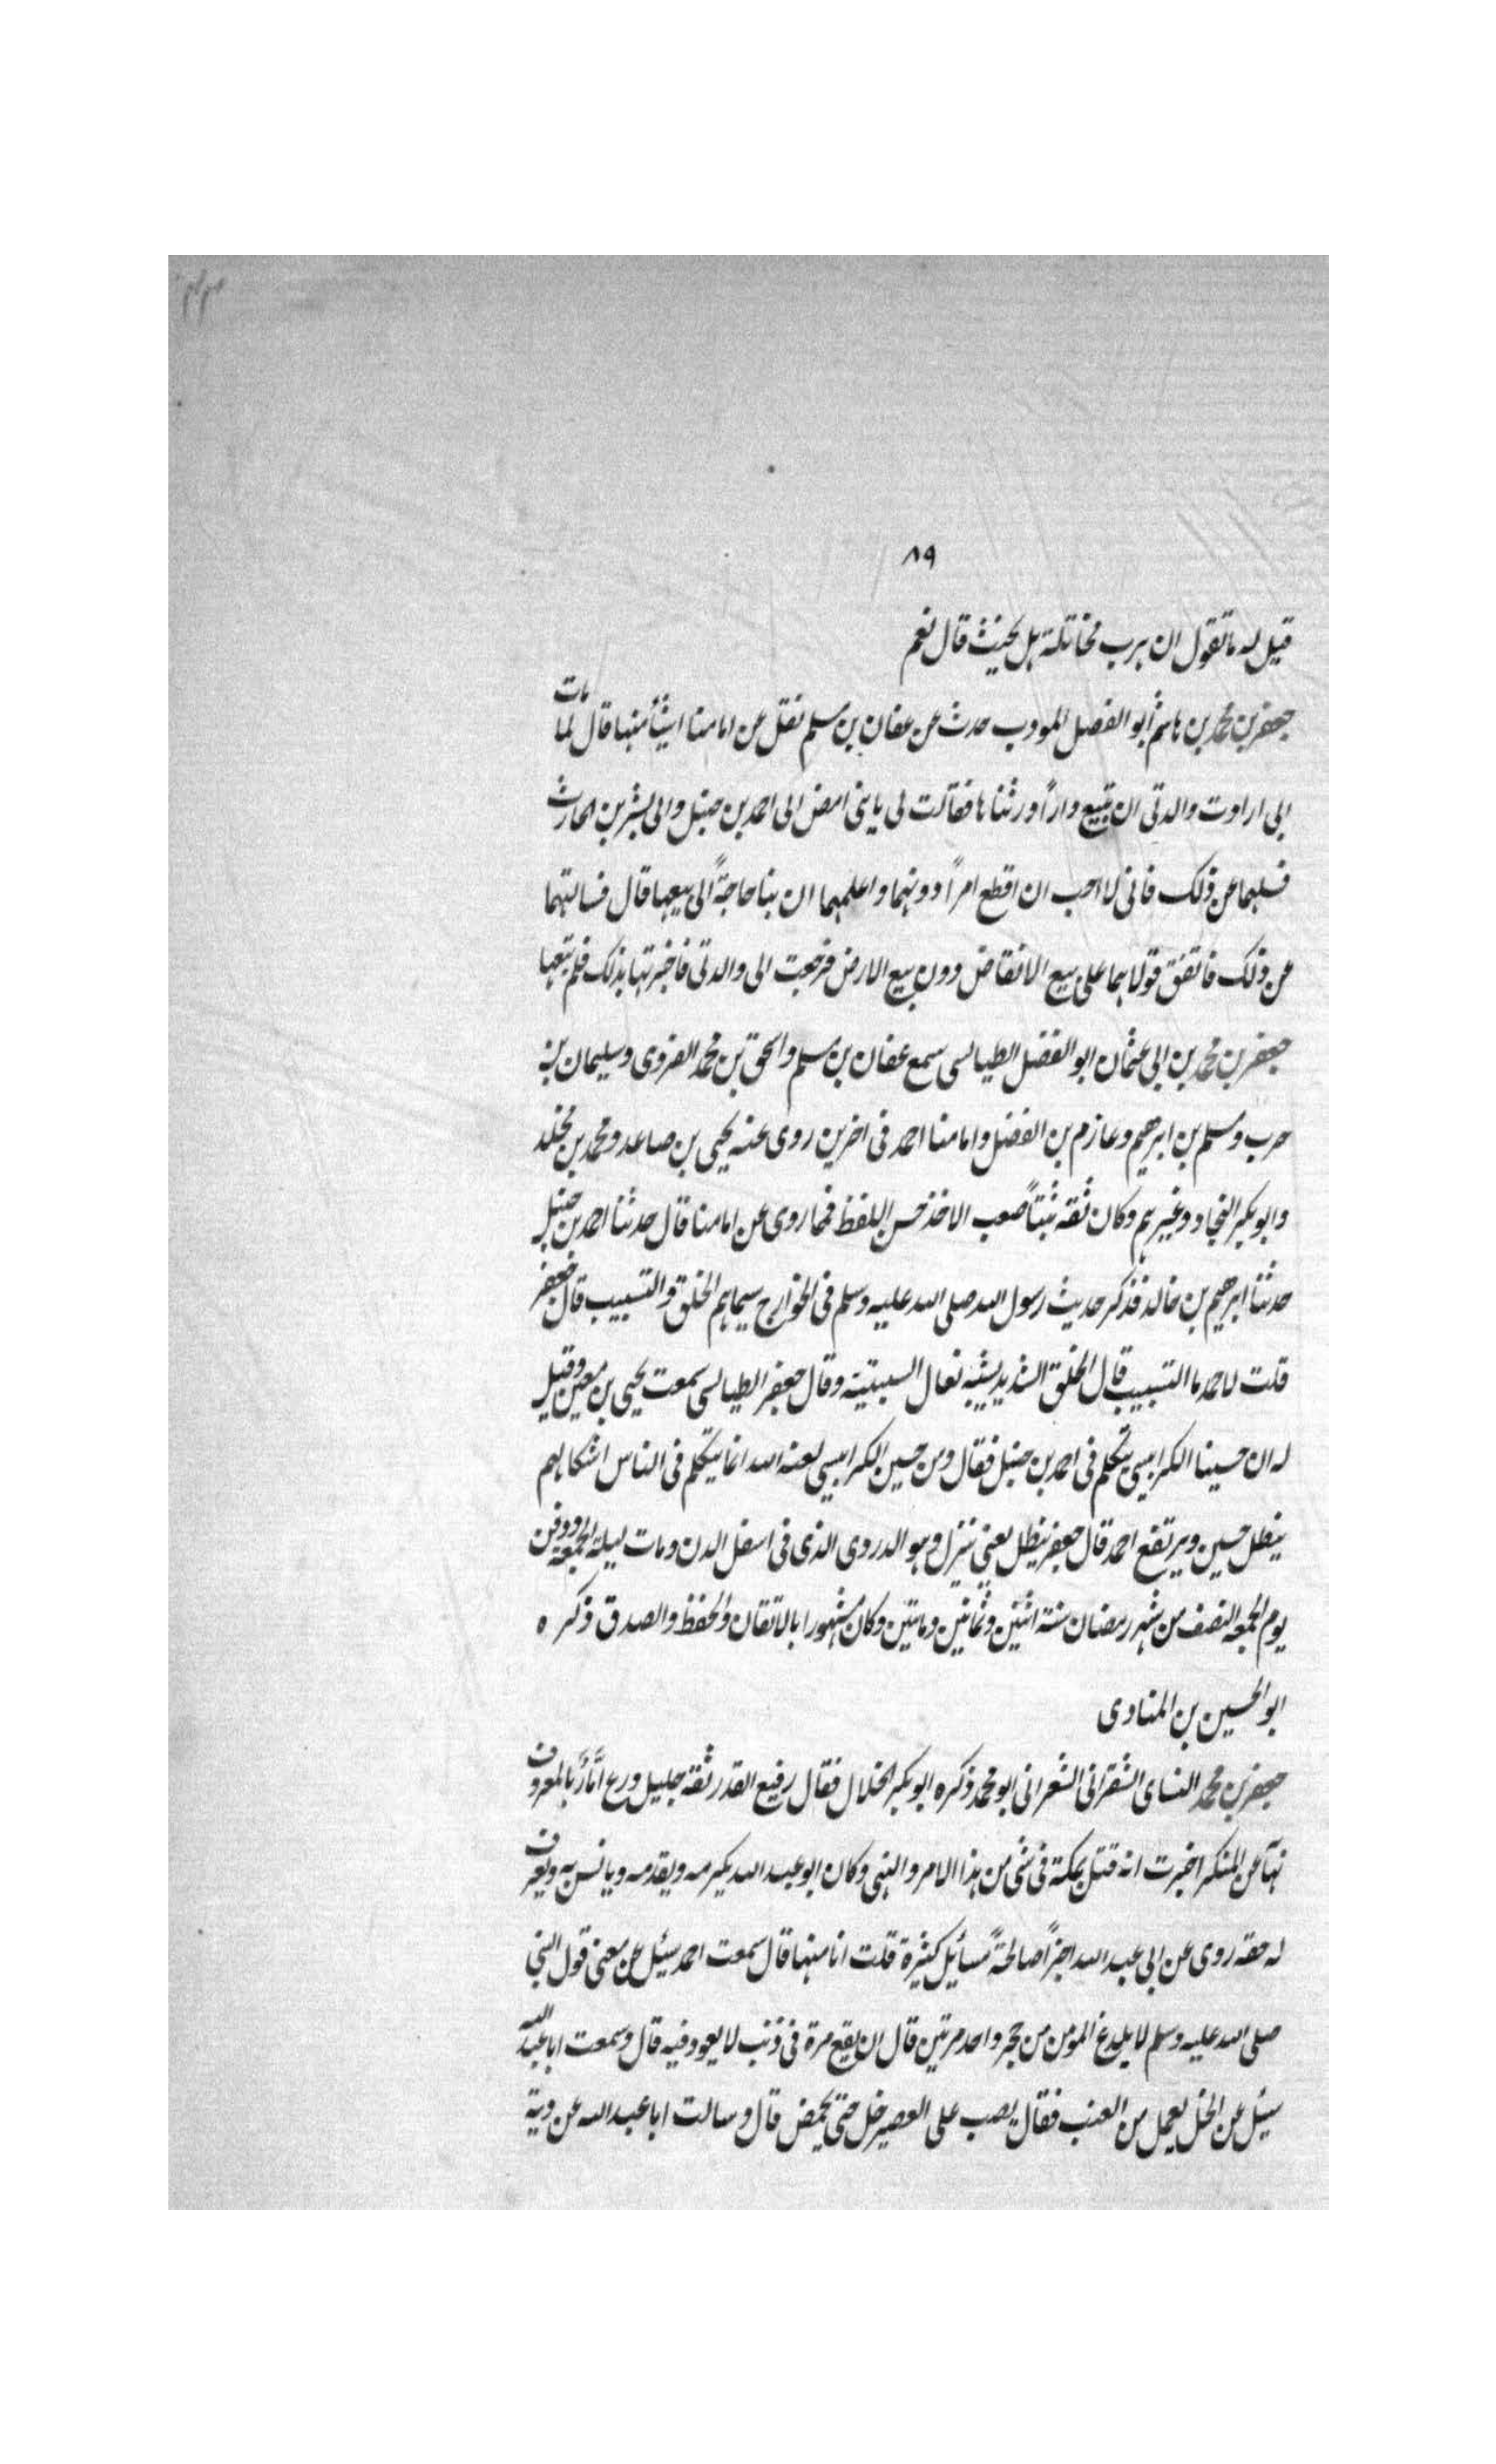 ٨٩
قيل له ما تقول ان برب مخاتلة بل يحنث قال نعم
جعفر بن محمد بن هاشم أبو الفضل المودب حدث عن عفان بن مسلم نقل عن امامنا اشيأ منها قال لما مات
ابى ارادت والدتى ان تبيع دارًا ورثناها فقالت لى يا بنى امض الى احمد بن حنبل والى بشر بن الحارث
فسلهما عن ذلك فانى لا احب ان اقطع امرًا دونهما واعلمهما ان بنا حاجةً الى بيعها قال فسالتهما
عن ذلك فاتفق قولاهما على بيع الانقاض دون بيع الارض فرجعت الى والدتى فاخبرتها بذلك فلم تبعها
جعفر بن محمد بن ابى عثمان ابو الفضل الطيالسى سمع عفان بن مسلم واسحق بن محمد الفروى وسليمان بن
حرب ومسلم بن ابرهيم وعازم بن الفضل وامامنا احمد فى اخرين روى عنه يحيى بن صاعد ومحمد بن مخلد
وابو بكر النجاد وغيرهم وكان ثقه ثبتًا صعب الاخذ حسن اللفظ فمما روى عن امامنا قال حدثنا احمد بن حنبل
حدثنا ابرهيم بن خالد فذكر حديث رسول الله صلى الله عليه وسلم فى الخوارج سيماهم الحلق والتسبيب قال جعفر
قلت لاحمد ما التسبيب قال الحلق الشديد يشبه نعال السبتية وقال جعفر الطيالسى سمعت يحيى بن معين وقيل
له ان حسينا الكرابيسى يتكلم فى احمد بن حنبل فقال ومن حسين الكرابيسى لعنه الله انما يتكلم فى الناس اشكالهم
ينطل حسين ويرتفع احمد قال جعفر ينطل يعنى ينزل وهو الدردى الذى فى اسفل الدن ومات ليلة الجمعه ودفن
يوم الجمعه النصف من شهر رمضان سنة اثنين وثمانين وماتين وكان مشهورا بالاتقان والحفظ والصدق ذكره
ابو الحسين بن المنادى
جعفر بن محمد النساى الشقرانى الشعرانى ابو محمد ذكره ابو بكر الخلال فقال رفيع القدر ثقة جليل ورع امّارًا بالمعروف
نهآ عن المنكر اخبرت انه قتل بمكة فى شى من هذا الامر والنهى وكان ابو عبد الله يكرمه ويقدمه ويانس به ويعرف
له حقه روى عن ابى عبد الله اجزاً صالحةً مسأيل كثيرة قلت انا منها قال سمعت احمد سئل عن معنى قول النبى
صلى الله عليه وسلم لا يلدغ المومن من جحر واحد مرتين قال ان يقع مرة فى ذنب لا يعود فيه قال وسمعت ابا عبد الله
سئل عن الخل يعمل من العنب فقال يصب على العصير خل حتى يحمض قال وسالت ابا عبد الله عن دية